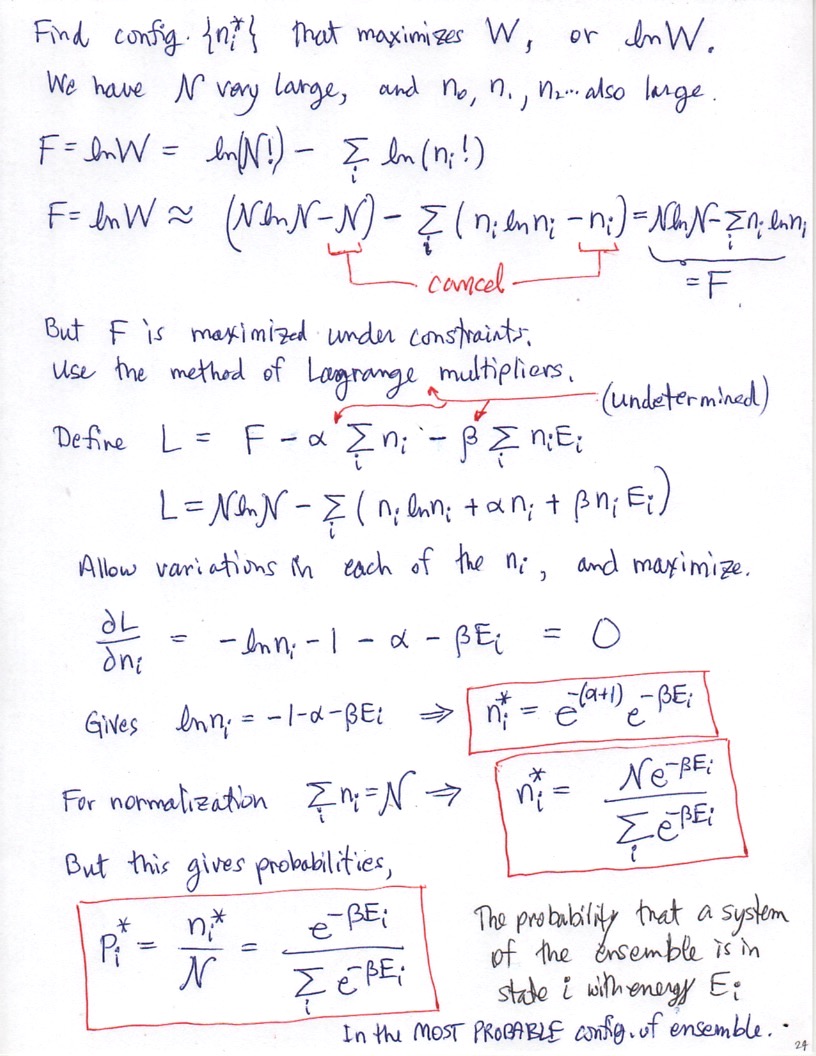 Find config. {nᵢ*} that maximizes W, or lnW.
We have N very large, and n₀, n₁, n₂... also large.
F = lnW = ln(N!) - Σᵢ ln(nᵢ!)
F = lnW ≈ (NlnN - N) - Σᵢ (nᵢ lnnᵢ - nᵢ) = NlnN - Σᵢ nᵢ lnnᵢ
cancel
= F
But F is maximized under constraints.
Use the method of Lagrange multipliers.
(undetermined)
Define L = F - α Σᵢ nᵢ - β Σᵢ nᵢEᵢ
L = NlnN - Σᵢ (nᵢ lnnᵢ + αnᵢ + βnᵢEᵢ)
Allow variations in each of the nᵢ, and maximize.
∂L/∂nᵢ = -lnnᵢ - 1 - α - βEᵢ = 0
Gives lnnᵢ = -1-α-βEᵢ ⇒ nᵢ* = e^-(α+1) e^-βEᵢ
For normalization Σᵢ nᵢ = N ⇒ nᵢ* = Ne^-βEᵢ / Σᵢ e^-βEᵢ
But this gives probabilities,
Pᵢ* = nᵢ*/N = e^-βEᵢ / Σᵢ e^-βEᵢ
The probability that a system
of the ensemble is in
state i with energy Eᵢ
In the MOST PROBABLE config. of ensemble.
24